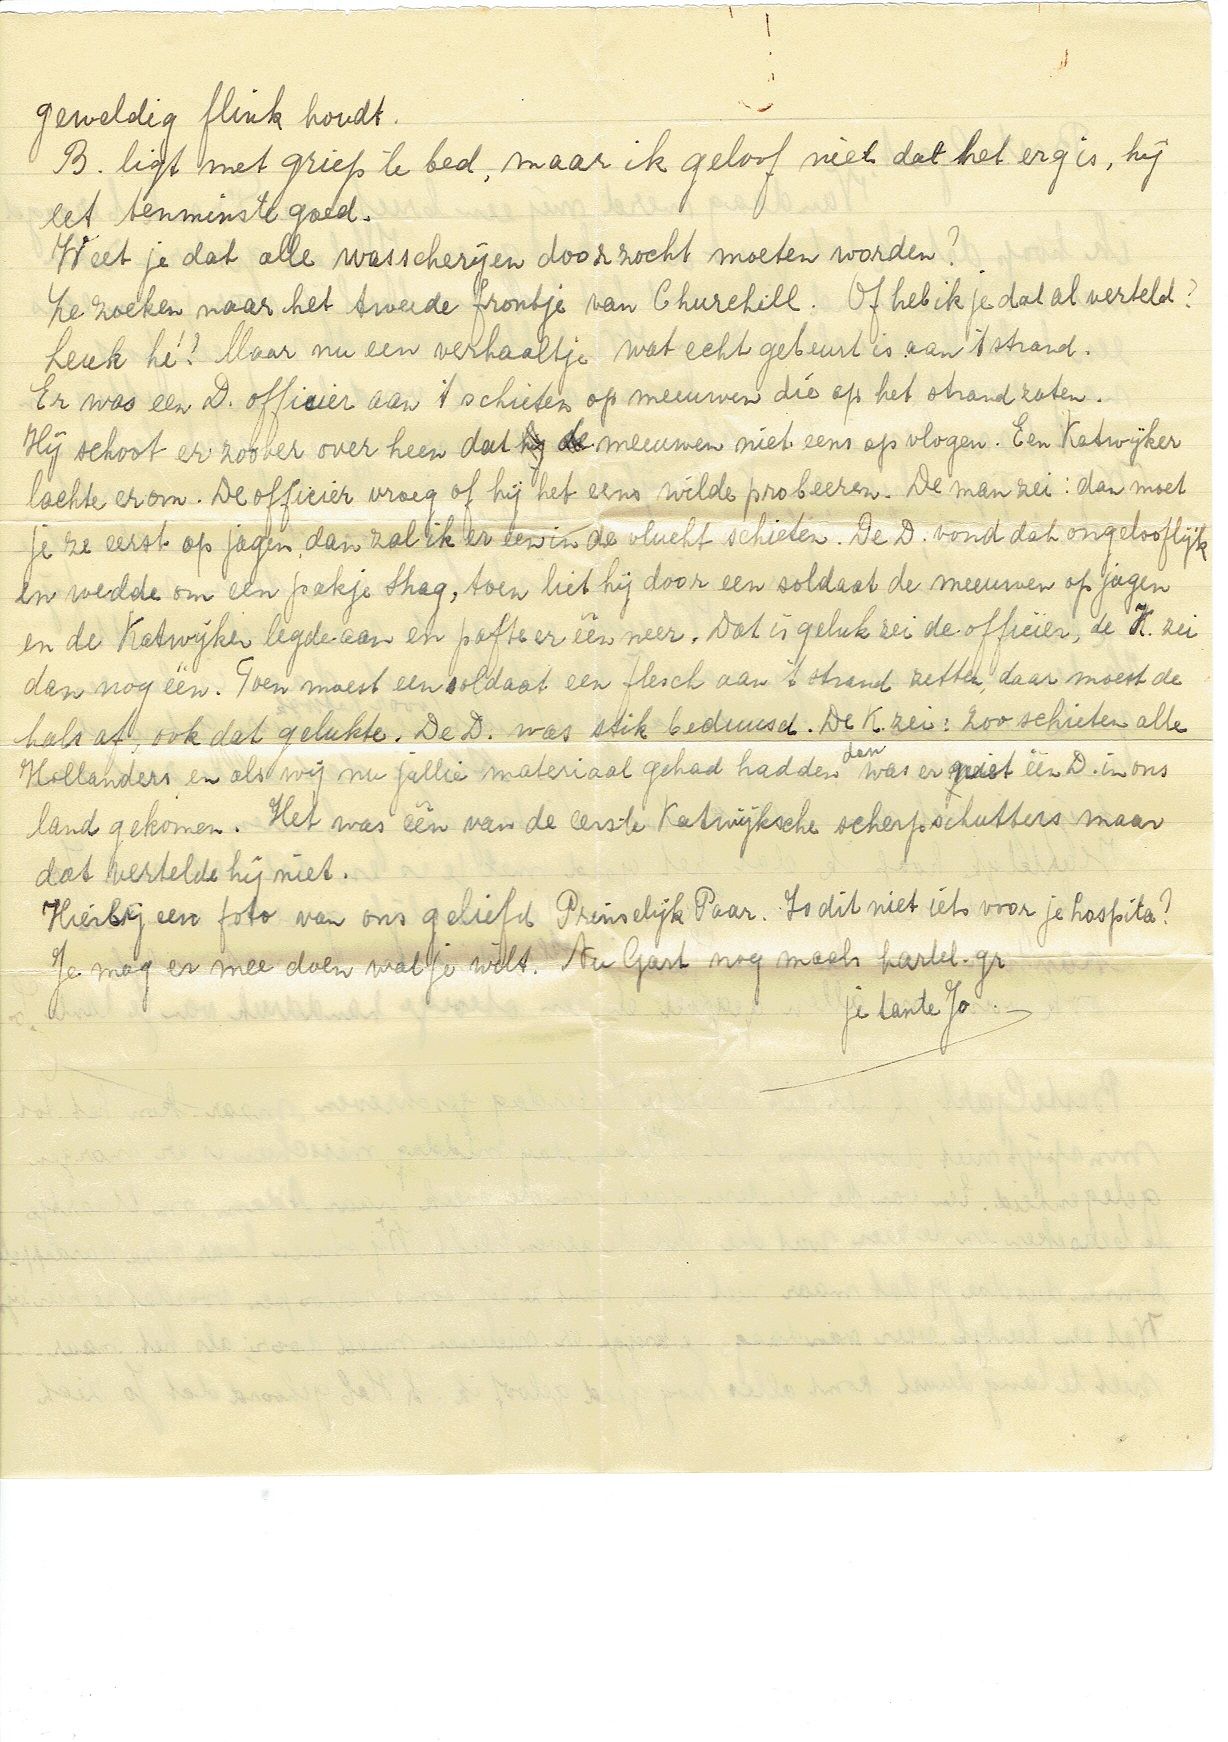 geweldig flink houdt.
B. ligt met griep te bed, maar ik geloof niet dat het erg is, hij
eet tenminste goed.
Weet je dat alle wasscherijen doorzocht moeten worden?
Ze zoeken naar het tweede frontje van Churchill. Of heb ik je dat al verteld?
Leuk hé!? Maar nu een verhaaltje wat echt gebeurt is aan 't strand.
Er was een D. officier aan 't schieten op meeuwen die op het strand zaten.
Hij schoot er zoover over heen dat hij de meeuwen niet eens op vlogen. Een Katwijker
lachte erom. De officier vroeg of hij het eens wilde probeeren. De man zei: dan moet
je ze eerst op jagen, dan zal ik er een in de vlucht schieten. De D. vond dat ongelooflijk
en wedde om een pakje shag, toen liet hij door een soldaat de meeuwen op jagen
en de Katwijker legde aan en pafte er één neer. Dat is geluk zei de officier, de K. zei
dan nog één. Toen moest een soldaat een flesch aan 't strand zetten, daar moest de
hals af, ook dat gelukte. De D. was stik beduusd. De K. zei: zoo schieten alle
Hollanders en als wij nu jullie materiaal gehad hadden dan was er niet één D. in ons
land gekomen. Het was één van de eerste Katwijksche scherpschutters maar
dat vertelde hij niet.
Hierbij een foto van ons geliefd Prinselijk Paar. Is dit niet iets voor je hospita?
Je mag er mee doen wat je wilt. Nu Gart nog maals hartel. gr
je tante Jo